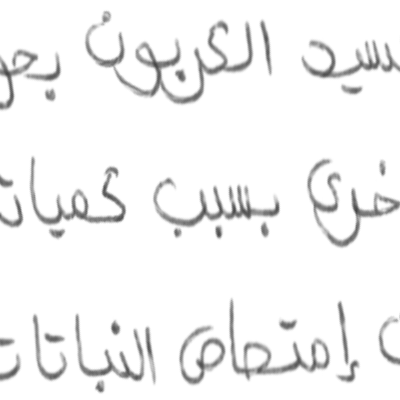 الكربون
خرى بسبب كميات
إمتصاص النباتات